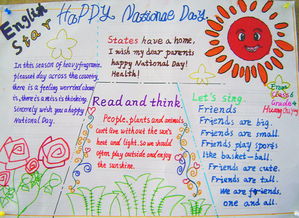 English
Star
HaPPy National Day
States have a home,
I wish my dear parents
happy National Day!
Health!
In this season of heavy fragrance,
pleasant day across the country,
there is a feeling worried
is, there is a miss is thinking.
Sincerely wish you a happy
National Day.
Read and think
People, plants and animals
can't live without the sun's
heat and light. so we should
often play outside and enjoy
the sunshine.
Let's sing.
Friends
Friends are big.
Friends are small.
Friends play sports
like basket-ball.
Friends are cute.
Friends are tall.
We are friends,
one and all.
From
Class
Grade 4
Huang